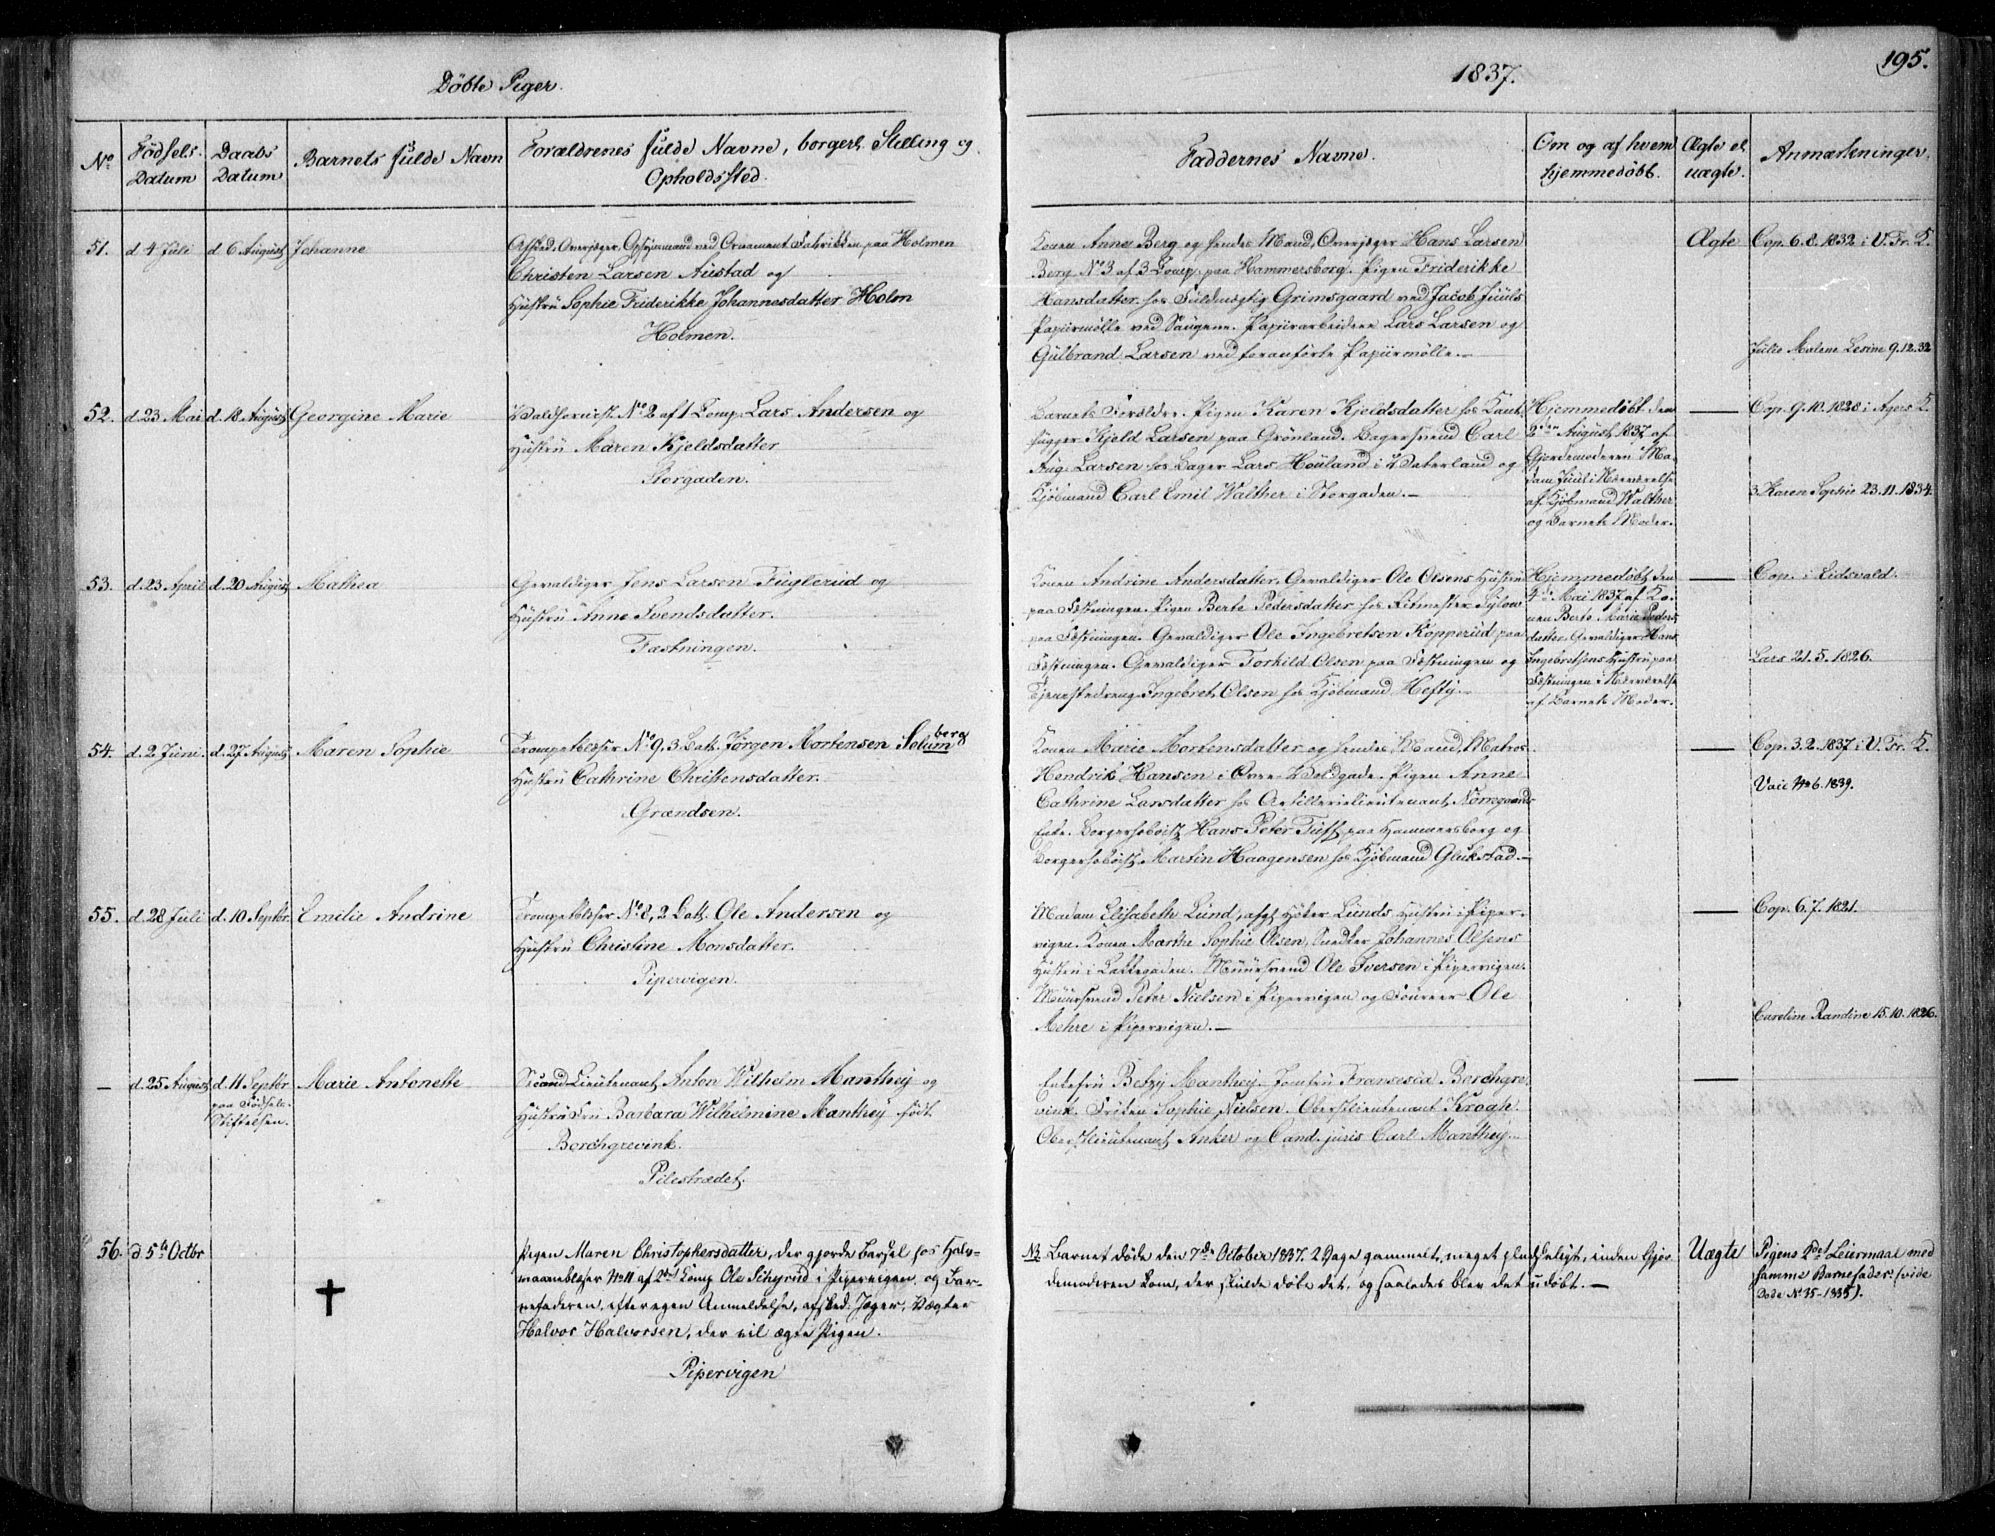 195.
Döbte Piger.
1837.
No
Födsels-Datum
Daabs Datum
Barnets fulde Navn
Forældrenes fulde Navne, borgerl. Stilling og Opholdssted.
Faddernes Navne.
Om og af hvem hjemmedöbt.
Ægte el. uægte.
Anmærkninger.
51. d 4 Juli d 6 August Johanne
Afsked. Overjæger, Opsynsmand ved Ornament Fabrikken paa Holmen
Christen Larsen Austad og
Hustru Sophie Friderikke Johannesdatter Holm
Holmen.
Konen Anne Berg og hendes Mand, Overjæger Hans Larsen
Berg No 3 af 3 Comp. paa Hammersborg. Pigen Friderikke
Hansdatter hos Fuldmægtig Grimsgaard ved Jacob Juuls
Papiirmölle ved Saugene. Papiirarbeidere Lars Larsen og
Gulbrand Larsen ved foranförte Papiirmölle.-
Ægte
Cop. 6.8.1832 i V. Fr. K.
Julie Malene Lesine 9.12.32
52. d. 23 Mai d. 18 August Georgine Marie
Valdhornist No 2 af 1 Comp. Lars Andersen og
Hustru Maren Kjeldsdatter
Storgaden.
Barnets Forældre. Pigen Karen Kjeldsdatter hos
Kjeld Larsen paa Grönland. Bagersvend Carl
Aug. Larsen hos Bager Lars Houland i Vaterland og
Kjöbmand Carl Emil Walther i Storgaden.-
Hjemmedöbt den
2den August 1837 af
Gjordemoderen Ma-
dam Juul i Nærværelse
af Kjöbmand Walther
og Barnets Moder.
—
Cop. 9.10.1828 i Agers K.
3 Karen Sophie 23.11.1834.
53. d. 23 April d. 20 August Mathea
Gevaldiger Jens Larsen Fuglerud og
Hustru Anne Svendsdatter.
Fæstningen.
Konen Andrine Andersdatter, Gevaldiger Ole Olsens Hustru
paa Fæstningen. Pigen Berte Pedersdatter hos Ritmester Sylow
paa Fæstningen. Gevaldiger Ole Ingebretsen Kopperud paa
Fæstningen. Gevaldiger Torkild Olsen paa Fæstningen og
Tjenestedreng Ingebret Olsen hos Kjöbmand Hefty.-
Hjemmedöbt den
4de Mai 1837 af Ko-
nen Berte Marie Peders
datter, Gevaldiger Hans
Ingebretsens Hustru paa
Fæstningen i Nærværelse
af Barnets Moder.
—
Cop. i Eidsvold.
Lars 21.5.1826.
54. d. 2 Juni. d. 27 August Maren Sophie
Trompetblæser No 9. 3. Batt. Jörgen Mortensen Solumberg
Hustru Cathrine Christensdatter.
Grændsen.
Konen Marie Mortensdatter og hendes Mand, Matros
Hendrik Hansen i Övre Voldgade. Pigen Anne
Cathrine Larsdatter hos Artillerielieutenant Nörregaards
Enke. Borgerhoboist Hans Peter Tuft paa Hammersborg og
Borgerhoboist Martin Haagensen hos Kjöbmand Glukstad.-
—
Cop. 3.2.1837 i V. Fr. K.
Vacc No 6. 1839.
55. d. 28 Juli d. 10 Septbr. Emilie Andrine
Trompetblæser No 8, 2 Batt. Ole Andersen og
Hustru Christine Monsdatter.
Pipervigen.
Madam Elisabeth Lund, Lunds Hustru i Piper-
vigen. Konen Marthe Sophie Olsen, Snedker Johannes Olsens
Hustru i Muursvend Ole Iversen i Pipervigen.
Muursvend Peter Nielsen i Pipervigen og Ole
Mehre i Pipervigen.-
—
Cop. 6.7.1821.
Caroline Randine 15.10.1826.
— d. 25 August d. 11 Septbr paa Födsels-Stiftelsen. Marie Antonette
Second Lieutenant Anton Wilhelm Manthey og
Hustru Fru Barbara Wilhelmine Manthey född
Borchgrevink.
Pilestrædet.
Enkefru Betzy Manthey. Jomfru Fransesca Borchgre-
vink. Fröken Sophie Nielsen. Oberstlieutenant Krogh.
Oberstlieutenant Anker og Cand. juris Carl Manthey.-
—
56. d 5te Octbr
✝
Pigen Maren Christophersdatter, der gjorde Barsel hos Halv-
maaneblæser No 11 af 2det Comp Ole Schyrud i Pipervigen, og Bar-
nefaderen, efter egen Anmeldelse, afsked. Jæger, Vægter
Halvor Halvorsen, der vil ægte Pigen.
Pipervigen
NB Barnet döde den 7de October 1837. 2 Dage gammelt, meget pludseligt, inden Gjor-
demoderen kom, der skulde döbe det, og saaledes blev det udöbt. —
Uægte
Pigens 2det Leiermaal med
samme Barnefader (vide
Döde No 35-1835).